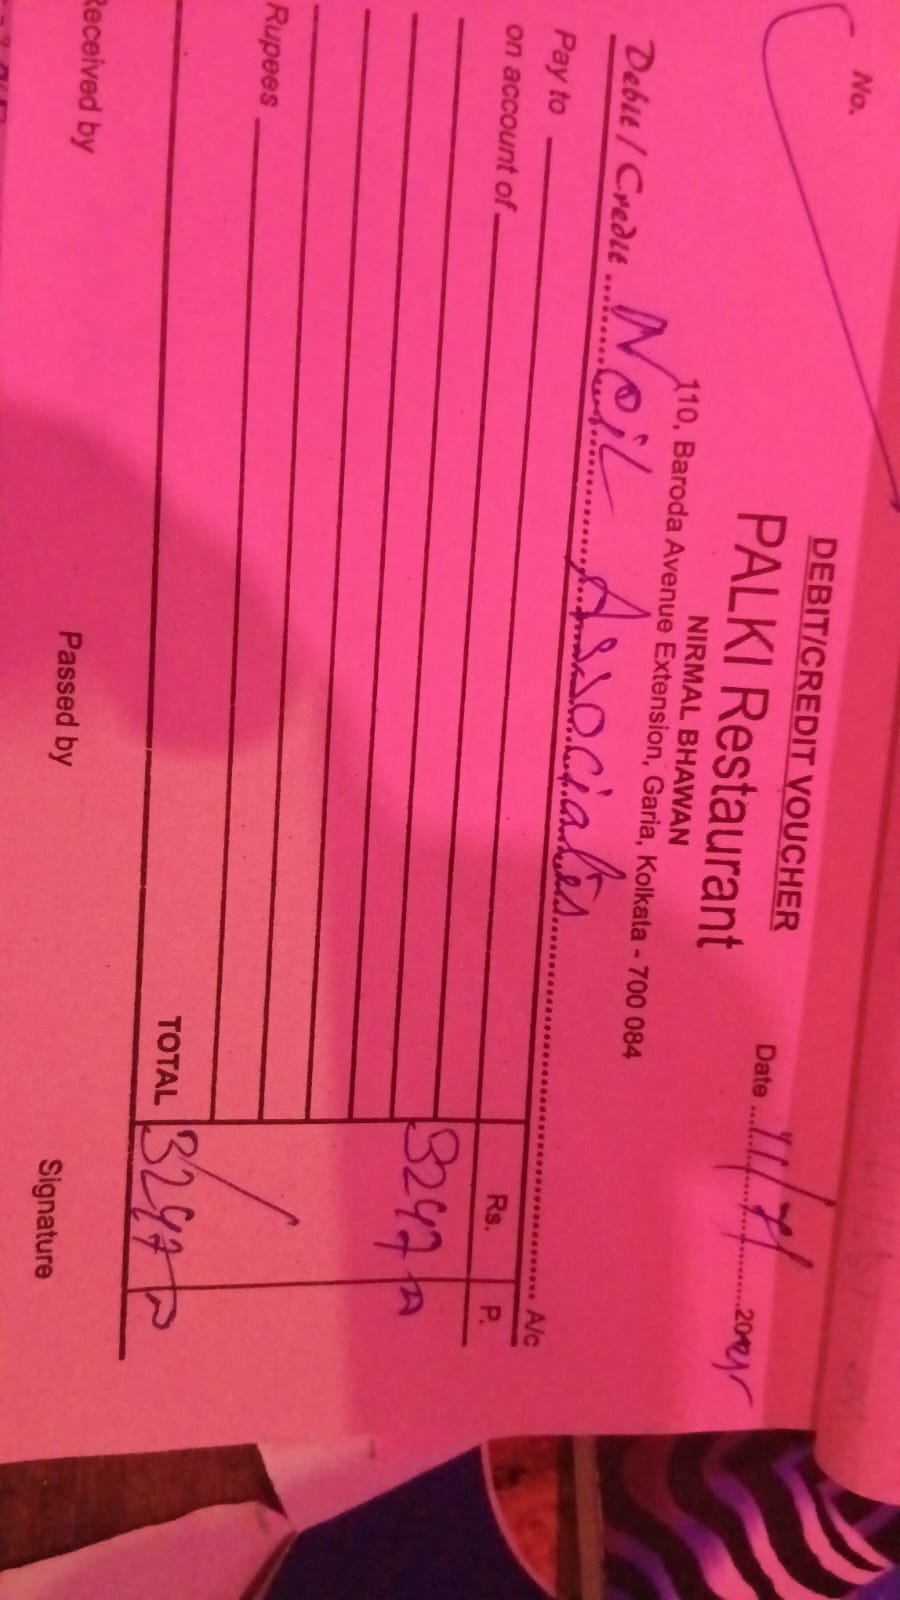 No.
DEBIT/CREDIT VOUCHER
PALKI Restaurant
NIRMAL BHAWAN
110, Baroda Avenue Extension, Garia, Kolkata - 700 084
Date 20
Debit / Credit Neil Associates A/c
Pay to
on account of Rs. P.
3247
Rupees
TOTAL 3247
Received by Passed by Signature